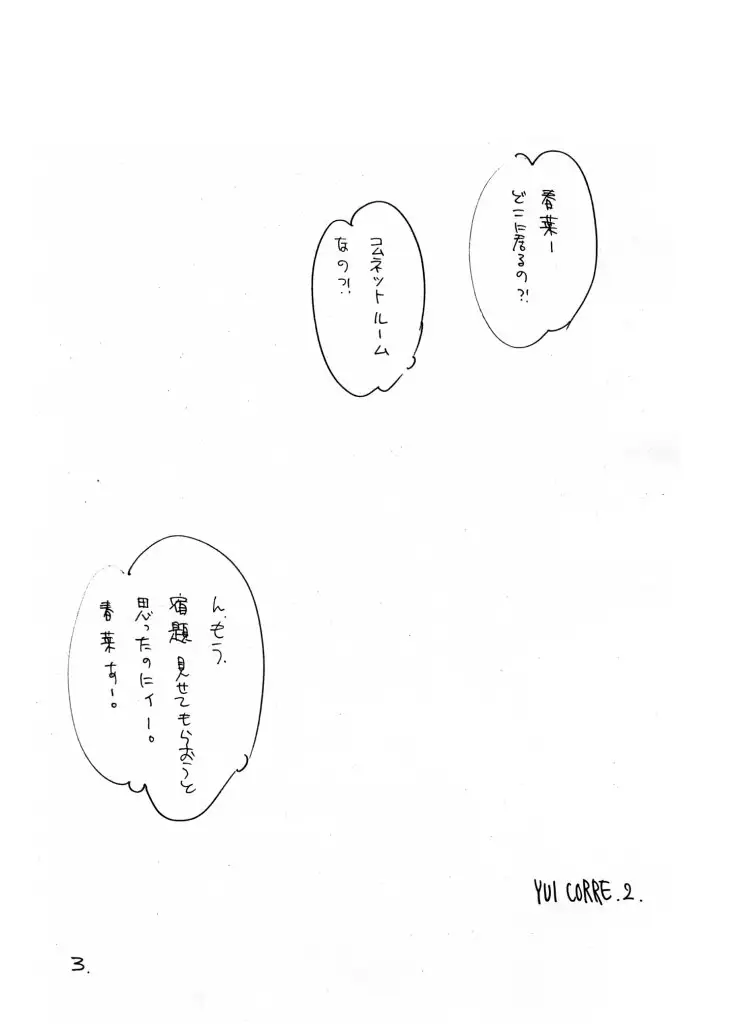 春葉ー
どこに居るの?!
コムネットルーム
なの?!
ん、もう、
宿題見せてもらおうと
思ったのにィー。
春葉ぁー。
YUI CORRE.2.
3.